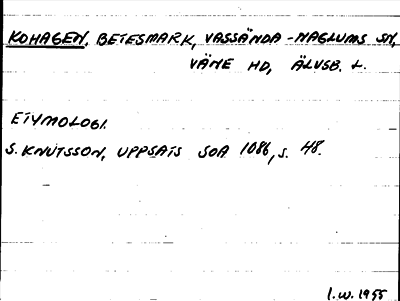 KOHAGEN, BETESMARK, VASSÄNDA-NAGLUMS SN,
VÄNE HD, ÄLVSB. L.
ETYMOLOGI.
S. KNUTSSON, UPPSATS SOA 1086, S. 48.
I.W. 1955